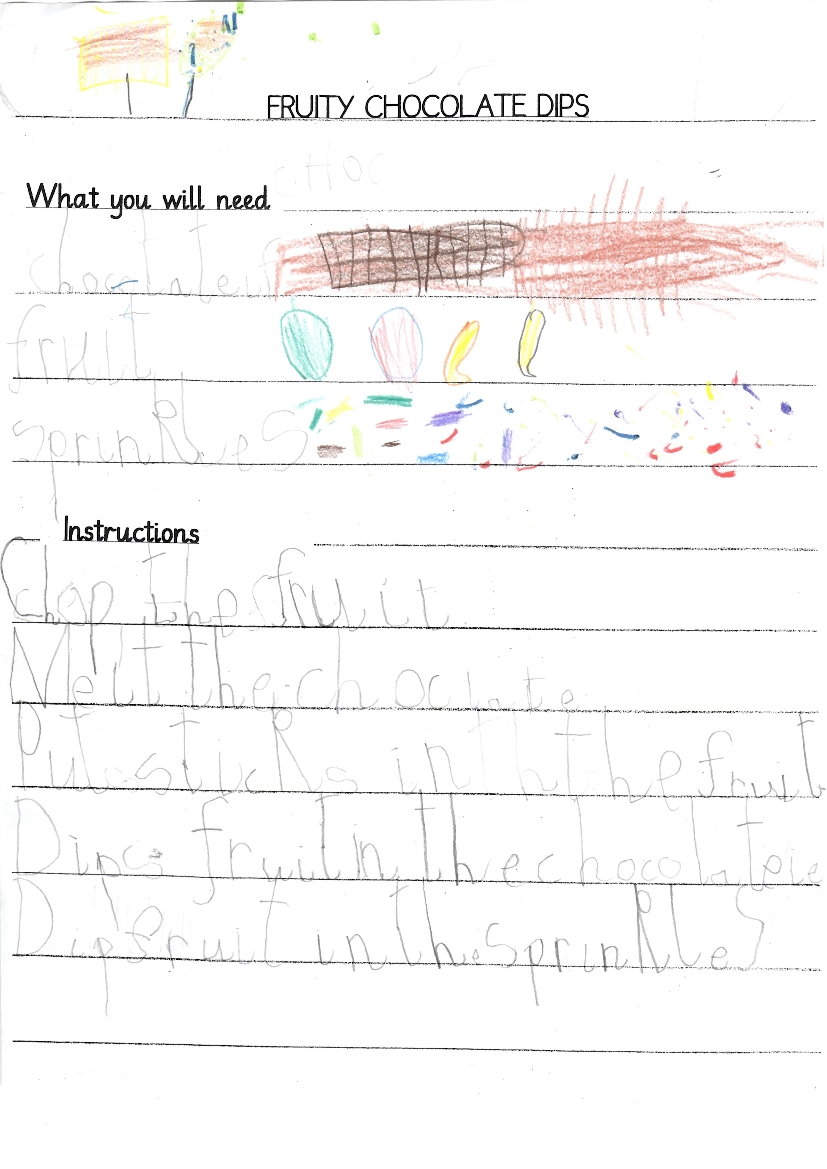 FRUITY CHOCOLATE DIPS
CHOC
What you will need
chocolate
fruit
sprinkles
Instructions
Chop the fruit
Melt the chocolate
Put sticks in the fruit
Dips fruit in the chocolate
Dip fruit in the sprinkles